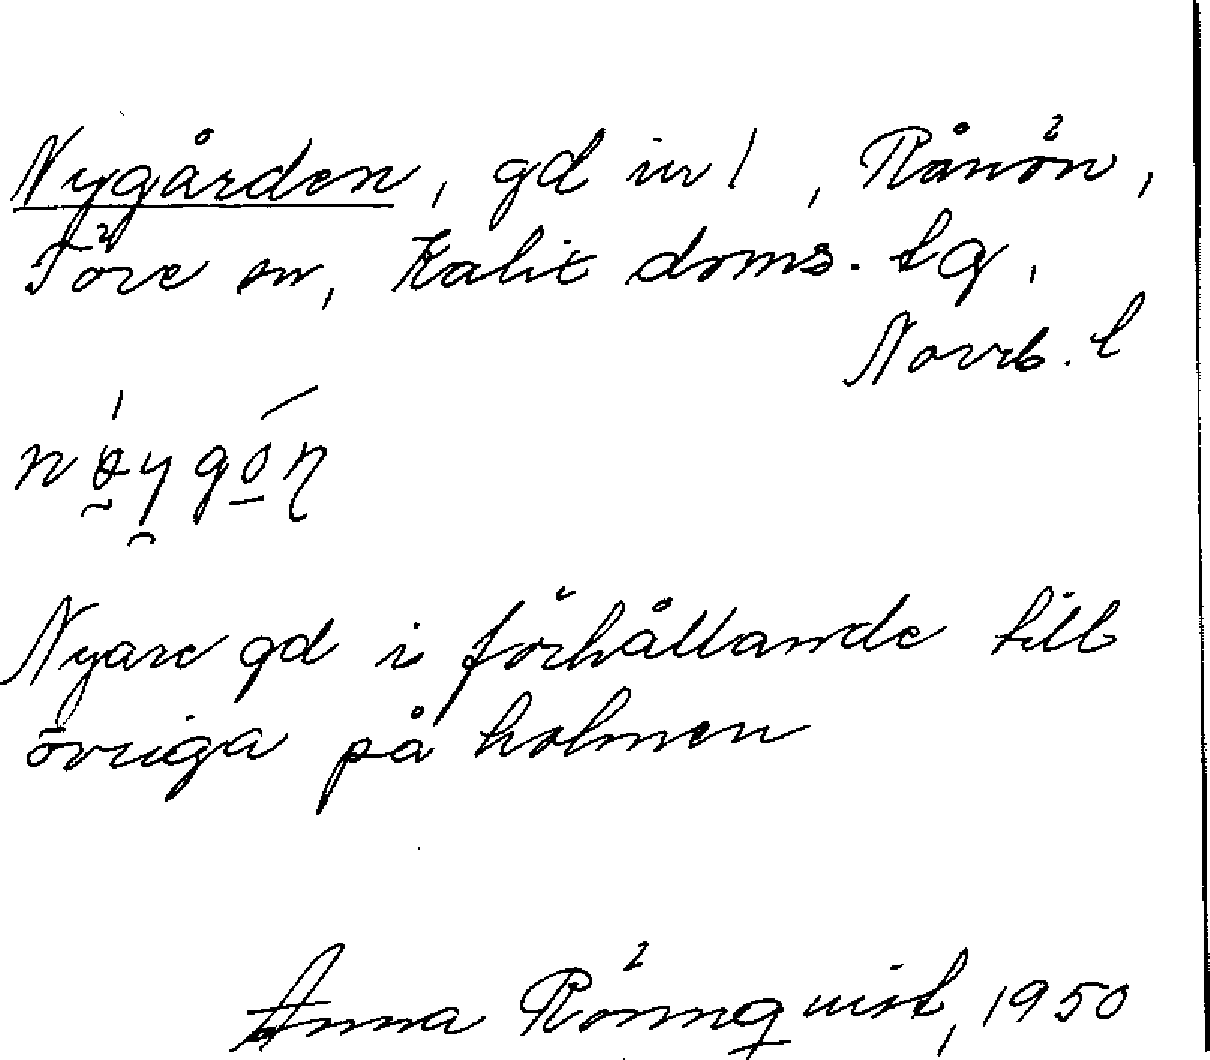 Nygården, gd in/, Rånön,
Töre sn, Kalix doms. lg,
Norrb. l
Nyare gd i förhållande till
övriga på holmen
Anna Rönnquist, 1950